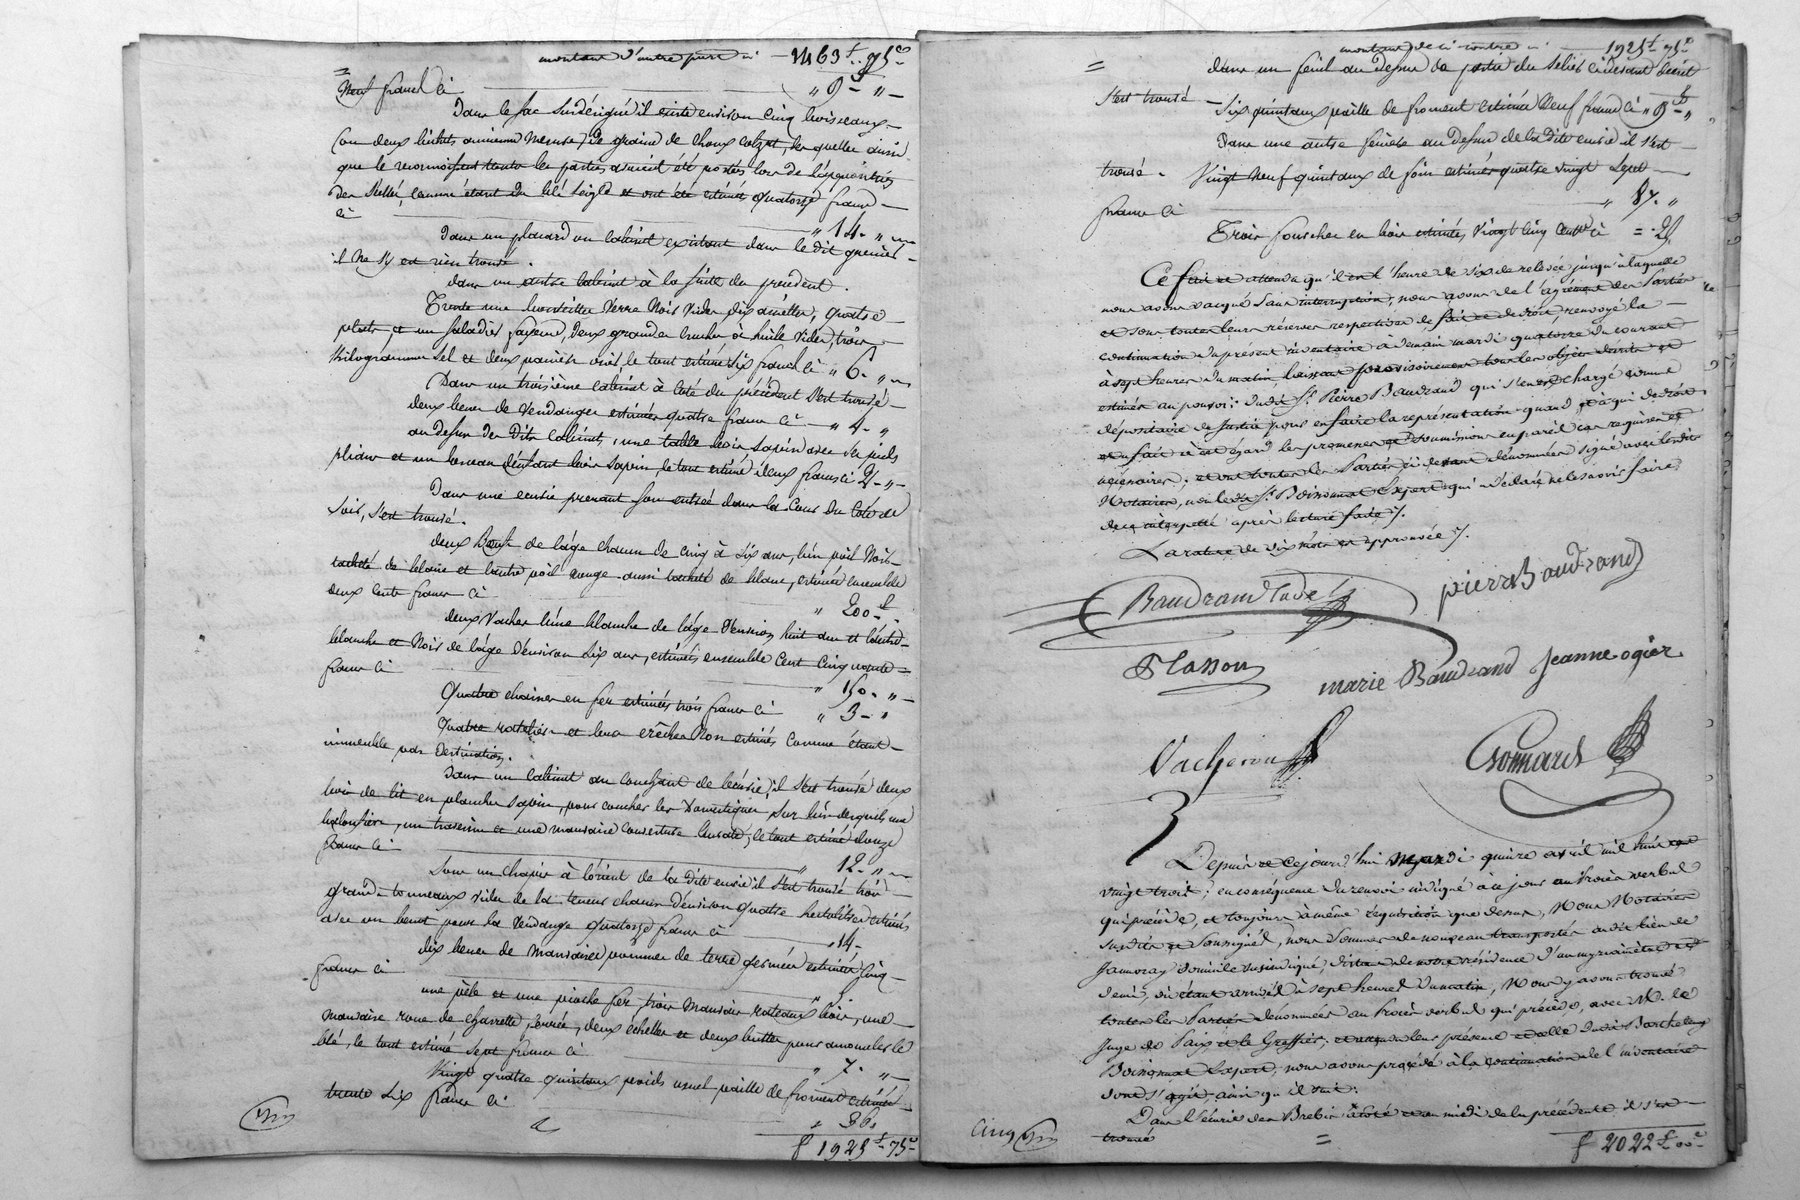 montant d'autre part ci — 1463 f. 75 c
neuf francs ci " 9 - " -
Dans le sac susdésigné il existe environ cinq boisseaux
(ou deux bichets ancienne mesure) de graine de choux colzat, les quelles ainsi
que le reconnoissent toutes les parties avaient été
des scellés, comme étant du blé seigle et ont été estimés quatorze francs
ci " 14. " -
Dans un placard ou cabinet existant dans le dit grenier
il ne s'y est rien trouvé.
dans un autre cabinet à la suite du précédent.
Trente une bouteilles verre noir vides, dix assiettes, quatre
plats, et un saladier fayence, deux grandes cruches à huile vides, trois
kilogrammes sel et deux paniers osier, le tout estimé six francs ci " 6. " -
Dans un troisième cabinet à coté du précédent s'est trouvé
deux bennes de vendange estimées quatre francs ci " 4. "
au dessus des dits cabinets, une table bois sapin avec ses pieds
pliants et un berceau d'enfant bois sapin, le tout estimé deux francs ci 2 - " -
Dans une ecurie prenant son entrée dans la cour du côté de
soir, s'est trouvé.
deux boeufs de l'âge chacun de cinq à six ans, l'un poil noir
tacheté de blanc et l'autre poil rouge aussi tacheté de blanc, estimés ensemble
deux cents francs ci " 200 f.
deux vaches l'une blanche de l'âge d'environ huit ans et l'autre
blanche et noir de l'âge d'environ six ans, estimées ensemble cent cinquante
francs ci " 150. " -
Quatre chaines en fer estimées trois francs ci " 3 - "
Quatre rateliers et leur crêches non estimés comme étant
immeuble par destination.
Dans un cabinet au couchant de l'écurie, il s'est trouvé deux
bois de lit en planches sapin, pour coucher les domestiques sur l'un desquels une
, un traversin et une mauvaise couverture , le tout estimé douze
francs ci " 12. " -
Sous un chapis à l'orient de la dite ecurie il s'est trouvé trois
grands tonneaux vides de la teneur chacun d'environ quatre hectolitres estimés
avec un benot pour la vendange quatorze francs ci " 14.
dix bennes de mauvaises pommes de terre germées estimées cinq
francs ci
une pêle et une pioche fer, trois mauvais rateaux bois, une
mauvaise roue de charrette ferrée, deux echelles et deux pour amonceler le
blé, le tout estimé sept francs ci " 7. " -
Vingt quatre quintaux poids usuel paille de froment estimés
trente six francs ci " 36.
f 1925 f. 75 c
montant de ci contre ci — 1925 f. 75 c
dans un fenil au dessus de partie du celier ci devant décrit
s'est trouvé — Six quintaux paille de froment estimés neuf francs ci " 9 f - "
Dans une autre fenière au dessus de la dite ecurie il s'est
trouvé. Vingt neuf quintaux de foin estimés quatre vingt sept
francs ci " 87. "
Trois fourches en bois estimées vingt cinq centes ci = . 25
Ce fait et attendu qu'il est l'heure de six de relevée jusqu'à laquelle
nous avons vacqué sans interruption, nous avons de l'agrément des parties
et sous toutes leurs réserves respectives de fait et de droit renvoyé la
continuation du présent inventaire à demain mardi quatorze du courant
à sept heures du matin, laissant provisoirement tous les objets décrits et
estimés au pouvoir dudit Sr. Pierre Baudrand qui s'en est chargé comme
dépositaire de justice pour en faire la représentation quand et à qui de droit
en fait à cet égard les promesses et soumissions en pareil cas requises et
nécessaires; et ont toutes les Parties ci devant dénommées signé avec lesdits
Notaires, non le dit Sr. Boinonnat Expert qui a déclaré ne le savoir faire
de ce interpellé après lecture faite ./.
La rature de dix mots est approuvée ./.
Baudrand cadet pierre Baudrand
Flasson marie Baudrand Jeanne ogier
Vacheron Gonnard
Depuis et cejourd'hui mardi quinze avril mil huit cent
vingt trois; en conséquence du renvoi indiqué à ce jour au procès verbal
qui précède, et toujours à même réquisition que dessus, Nous Notaires
susdits et soussignés, nous sommes de nouveau transportés audit lieu de
Jannoray domicile susindiqué, distant de notre résidence d'un myriamètre et
demi, où étant arrivés à sept heures du matin, Nous y avons trouvé
toutes les Parties dénommées au Procès verbal qui précède, avec M. le
Juge de Paix et le Greffier; et en leur présence et celle dudit Barthelemy
Boinonnat Expert, nous avons procédé à la continuation de l'inventaire
dont s'agit, ainsi qu'il suit:
Dans l'écurie des Brebis à côté et au midi de la précédente, il s'est
trouvé =
cinq
f 2022 f. 00 c